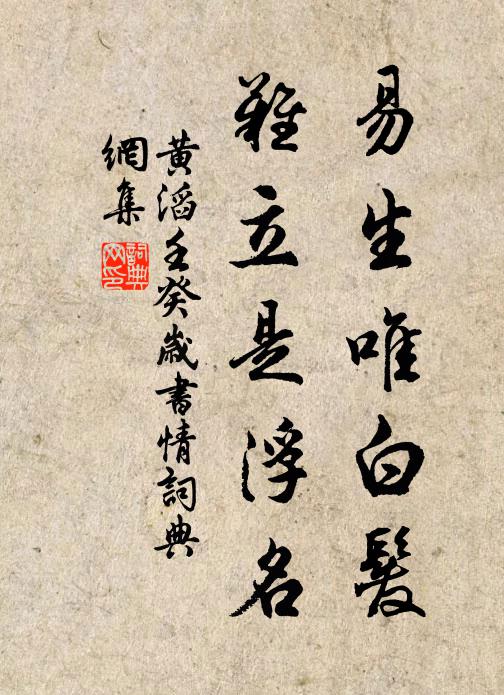 易生唯白髮
難立是浮名
黃滔壬癸歲書情詞典
網集
詞典網印